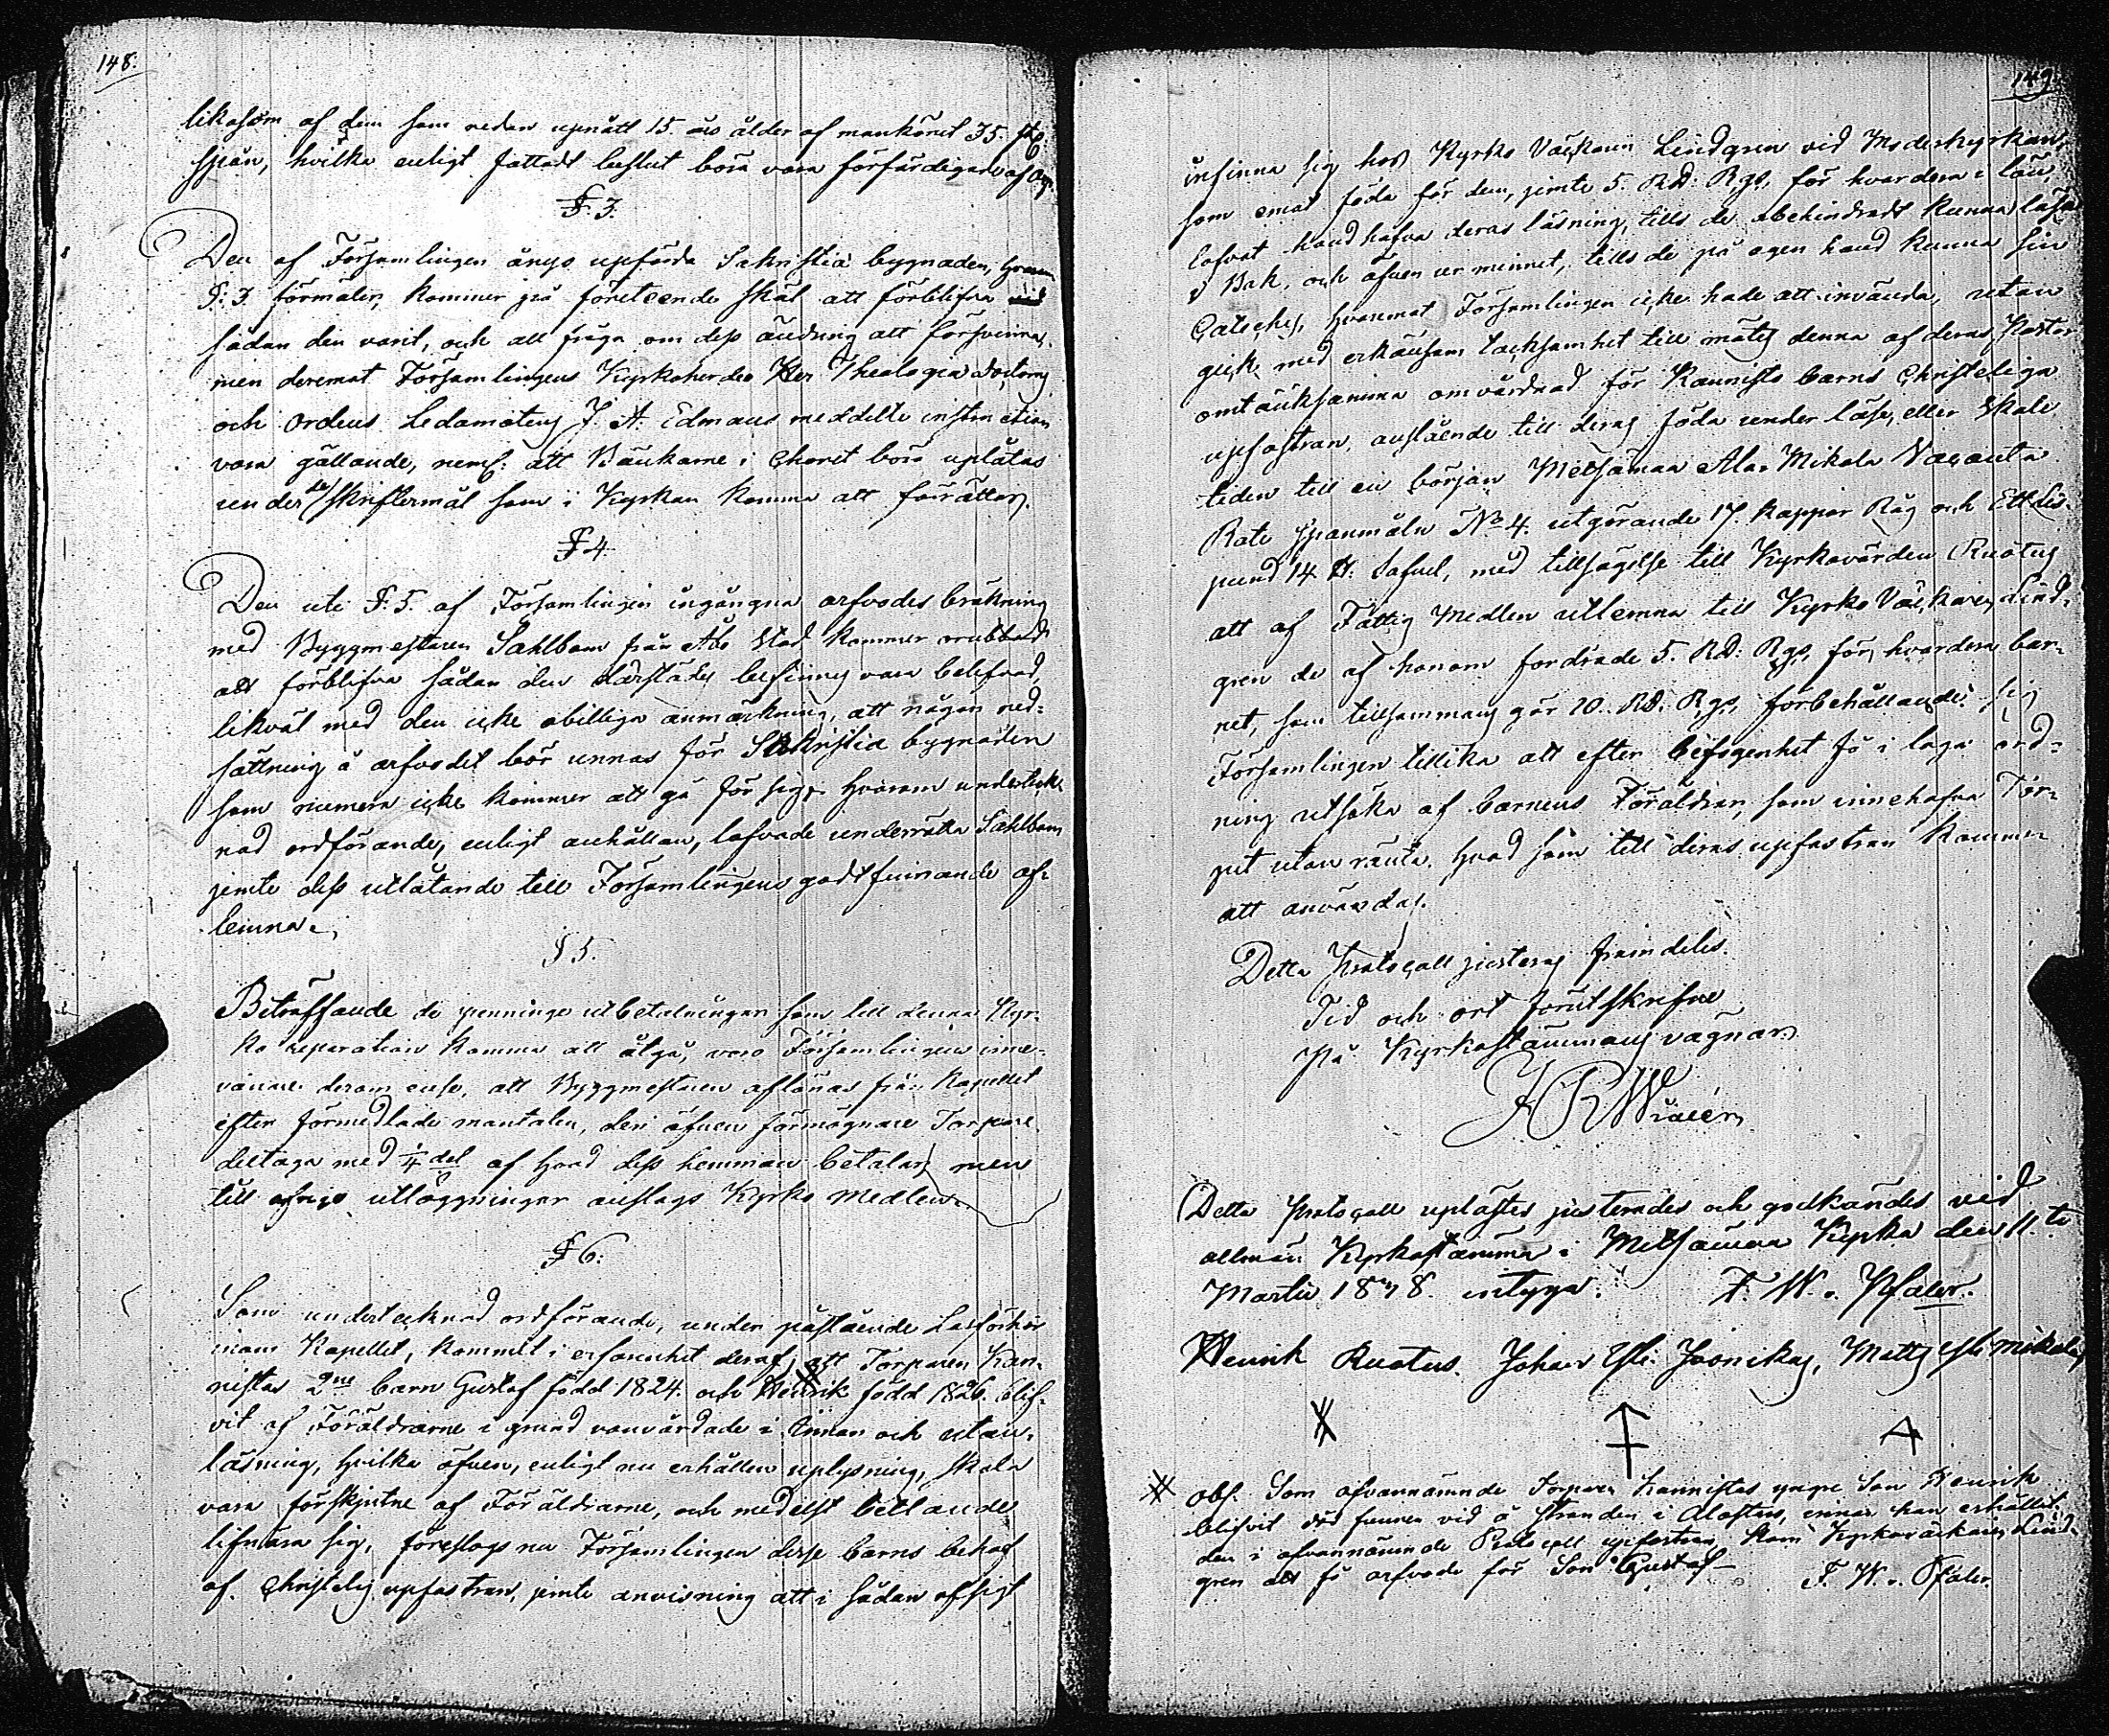 148.
likasom af dem som redan upnått 15. års ålder af mankönet 35. st:
spån, hvilka enligt fattadt beslut böra vara förfärdigade af Asp.
§. 3.
Den af Församlingen ånyo upförda Sakristia bygnaden, hvarom
§: 3 förmäler, kommer på företeende skäl att förblifva
sådan den varit, och all fråga om dess ändring att försvinna,
men deremot Församlingens Kyrkoherdes Herr Theologiæ doctorns
och Ordens Ledamotens J. A. Edmans meddelte instruction
vara gällande, neml: att Bänkarne i Choret böra uplåtas
under de skriftermål som i Kyrkan komma att förrättas.
§ 4
Den uti §. 5. af Församlingen ingångna arfvodes beräkning
med Byggmestaren Sahlbom från Åbo Stad kommer orubbadt
att förblifva sådan den därstädes befinnes vara belefvad,
likväl med den icke obilliga anmärkning, att någon ned-
sättning å arfvodet bör unnas för Sakristia bygnaden
som numera icke kommer att gå för sig. Hvarom underteck-
nad ordförande, enligt anhållan, lofvade underrätta Sahlbom
jemte dess utlåtande till Församlingens godtfinnande af-
lemna.
§ 5.
Beträffande de penninge utbetalningar som till denna Kyr-
ko reparation komma att åtgå, voro Församlingens inne-
vånare derom ense, att Byggmestaren aflönas från Kapellet
efter förmedlade mantalen, den äfven förmögnare Torpare
deltaga med 1/4 del af hvad dess hemman betalar, men
till öfriga utläggningar anslogs Kyrko medlen.
§ 6.
Som undertecknad ordförande, under påstående Läseförhör
inom Kapellet, kommit i erfarenhet deraf, att Torparen Kan-
nistos 2ne barn Gustaf född 1824. och Henrik född 1826. blif-
vit af Föräldrarne i grund vanvårdade i Innan och utan-
läsning, hvilka äfven, enligt nu erhållen uplysning, skola
vara förskjutne af Föräldrarne, och medelst betlande
lifnära sig, föreslogs nu Församlingen desse barns behof
af Christelig upfostran, jemte anvisning att i sådan afsigt
149.
insinna sig hos Kyrko Väckaren Lindgren vid Moderkyrkan,
som emot föda för dem, jemte 5. RD: Rgs, för hvardera i lön,
lofvat handhafva deras läsning, tills de obehindradt kunna läsa
i Bok, och äfven ur minnet, tills de på egen hand kunna sin
Catechés, hvaremot Församlingen icke hade att invända, utan
gick med erkänsam tacksamhet till mötes denna af deras Pastor
omtänksamma omvårdnad för Kannisto barns Christeliga
upfostran, anslående till deras föda under läse, eller Skole
tiden till en början Metsämaa Ala-Mikola Vacanta
Rote spanmåln No 4. utgörande 17. kappor Råg och Ett Lis-
pund 14 ℔. Safvel, med tillsägelse till Kyrkovärden Ruotus
att af Fattig Medlen utlemna till Kyrko Väckaren Lind-
gren de af honom fordrade 5. RD: Rgs, för hvardera bar-
net, som tillsammans gör 10. RD: Rgs, förbehållande sig
Församlingen tillika att efter befogenhet få i laga ord-
ning utsöka af barnens Föräldrar, som innehafva Tor-
pet utan ränta, hvad som till deras upfostran kommer
att användas.
Detta Protocoll justeras framdeles.
Tid och ort förutskrifne
På Kyrkostämmans vägnar
Detta Protocoll uplästes justerades och godkändes vid
allmän Kyrkostämma i Metsämaa Kyrka den 11.te
Martii 1838. intyga. F. W. v. Pfaler.
Henrik Ruotus. Johan Yli Jaonikas, Matts Yli Mikola,
obs. Som ofvannämnde Torparen Kannistos yngre Son Henrik
blifvit död funnen vid å stranden i Alastaro, innan han erhållit
den i ofvannämnde Protocoll upfostran, kom Kyrkoväckaren Lind-
gren att få arfvode för Son Gustaf— F. W. v. Pfaler.